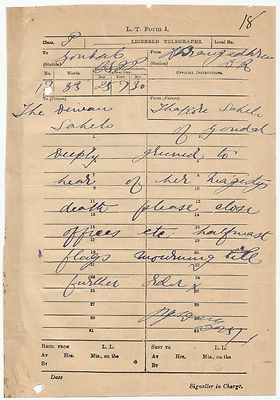 18
L. T. Form 1.
Class. P LICENSED TELEGRAPHS. Local No.
To From
(Station) (Station)
No. Words. Day. Hour. Min. OFFICIAL INSTRUCTIONS.
33 25 7 30
To (Person) From (Person)
The Dewan Thakore Saheb
Saheb of Gondal
Deeply grieved to
hear of her tragedy
death please close
offices etc. halfmast
flags mourning till
further order
RECD. FROM L. L. SENT TO L. L.
AT Hrs. Mts., on the AT Hrs. Mts., on the
BY BY
Date
Signaller in Charge.